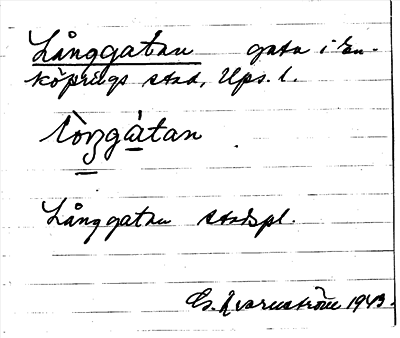 Långgatan gata i En-
köpings stad, Ups. l.
lòŋgàtan
Långgatan stadspl.
Es. Qvarnström 1943.